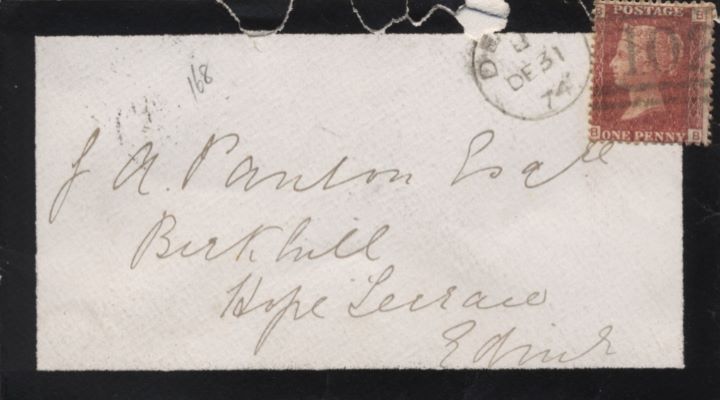 168
DE 31
74
POSTAGE
ONE PENNY
B B
J A. Panton Esqre
Birkhill
Hope Terrace
Edinr